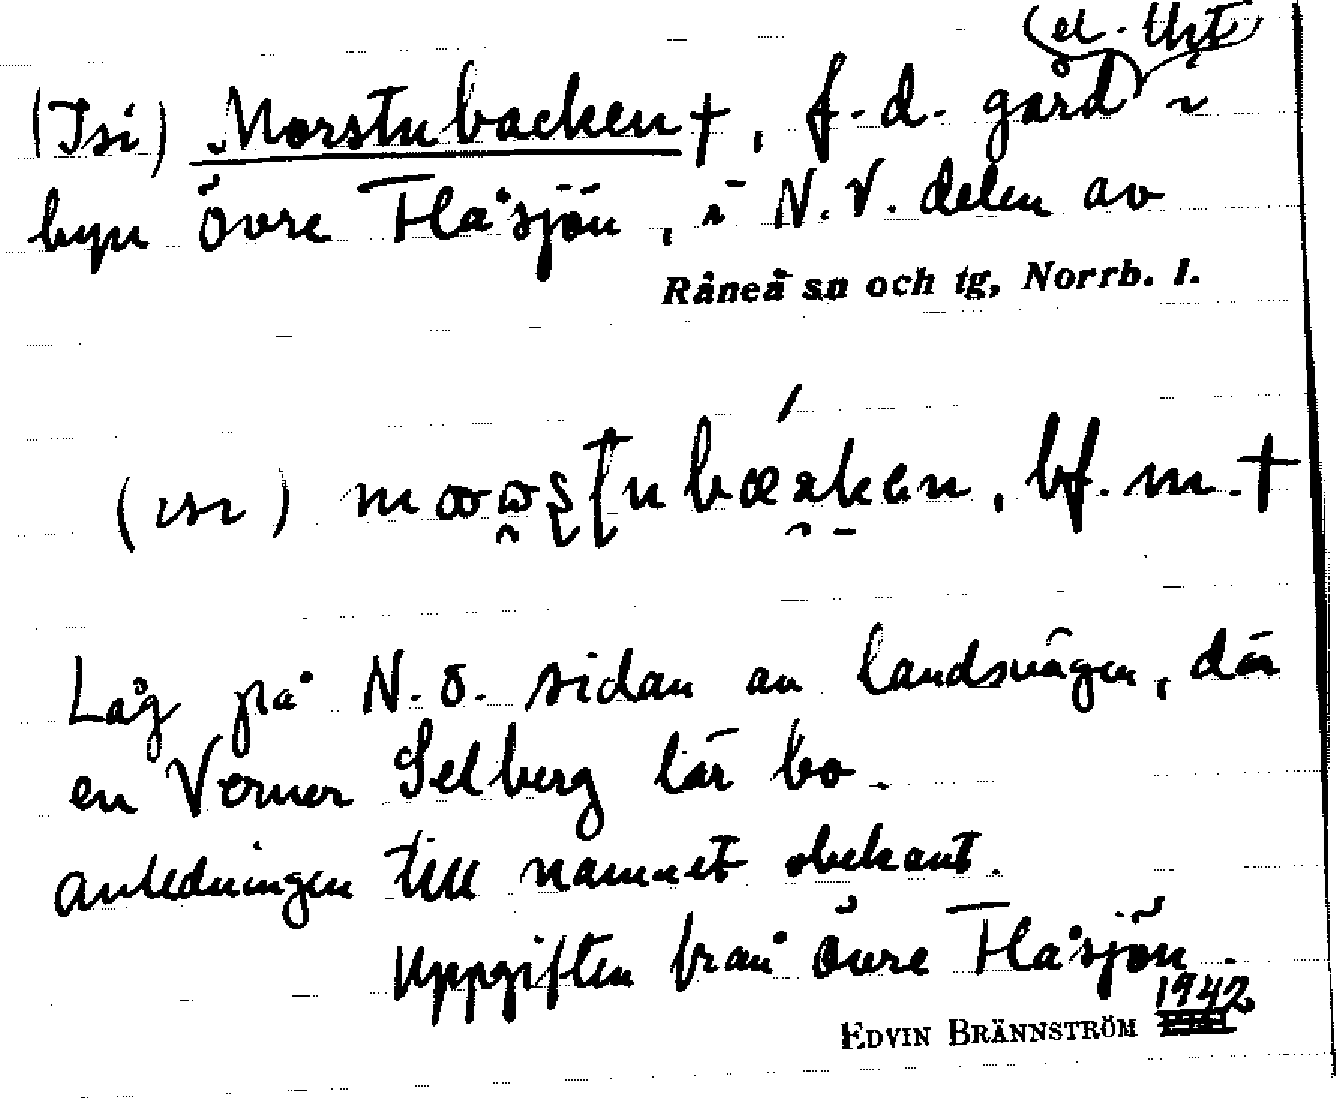 (el. tht)
(Isi) Morstubacken †, f.d. gård i
byn Övre Flåsjön, i N.V. delen av
Råneå sn och tg, Norrb. l.
bf. m. †
Låg på N.Ö. sidan av landsvägen, där
en Verner Selberg lär bo.
Anledningen till namnet obekant.
Uppgiften från Övre Flåsjön.
1942
EDVIN BRÄNNSTRÖM